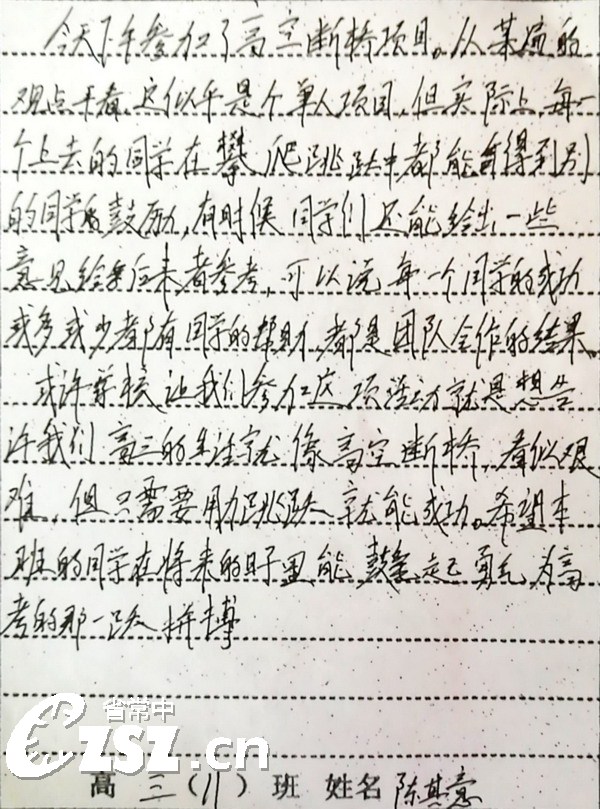 今天下午参加了高空断桥项目。从某方面的
观点来看,这似乎是个单人项目,但实际上,每一
个上去的同学在攀爬跳跃中都能获得到别
的同学的鼓励,有时候同学们还能给出一些
意见给后来者参考,可以说每一个同学的成功
或多或少都有同学的帮助,都是团队合作的结果。
或许学校让我们参加这项活动就是想告
诉我们高三的生活就像高空断桥,看似艰
难,但只需要用力跳跃就能成功。希望本
班的同学在将来的日子里能鼓起勇气,为高
考的那一跃拼搏
省常中
CZSZ.cn
高三(11)班 姓名 陈其意